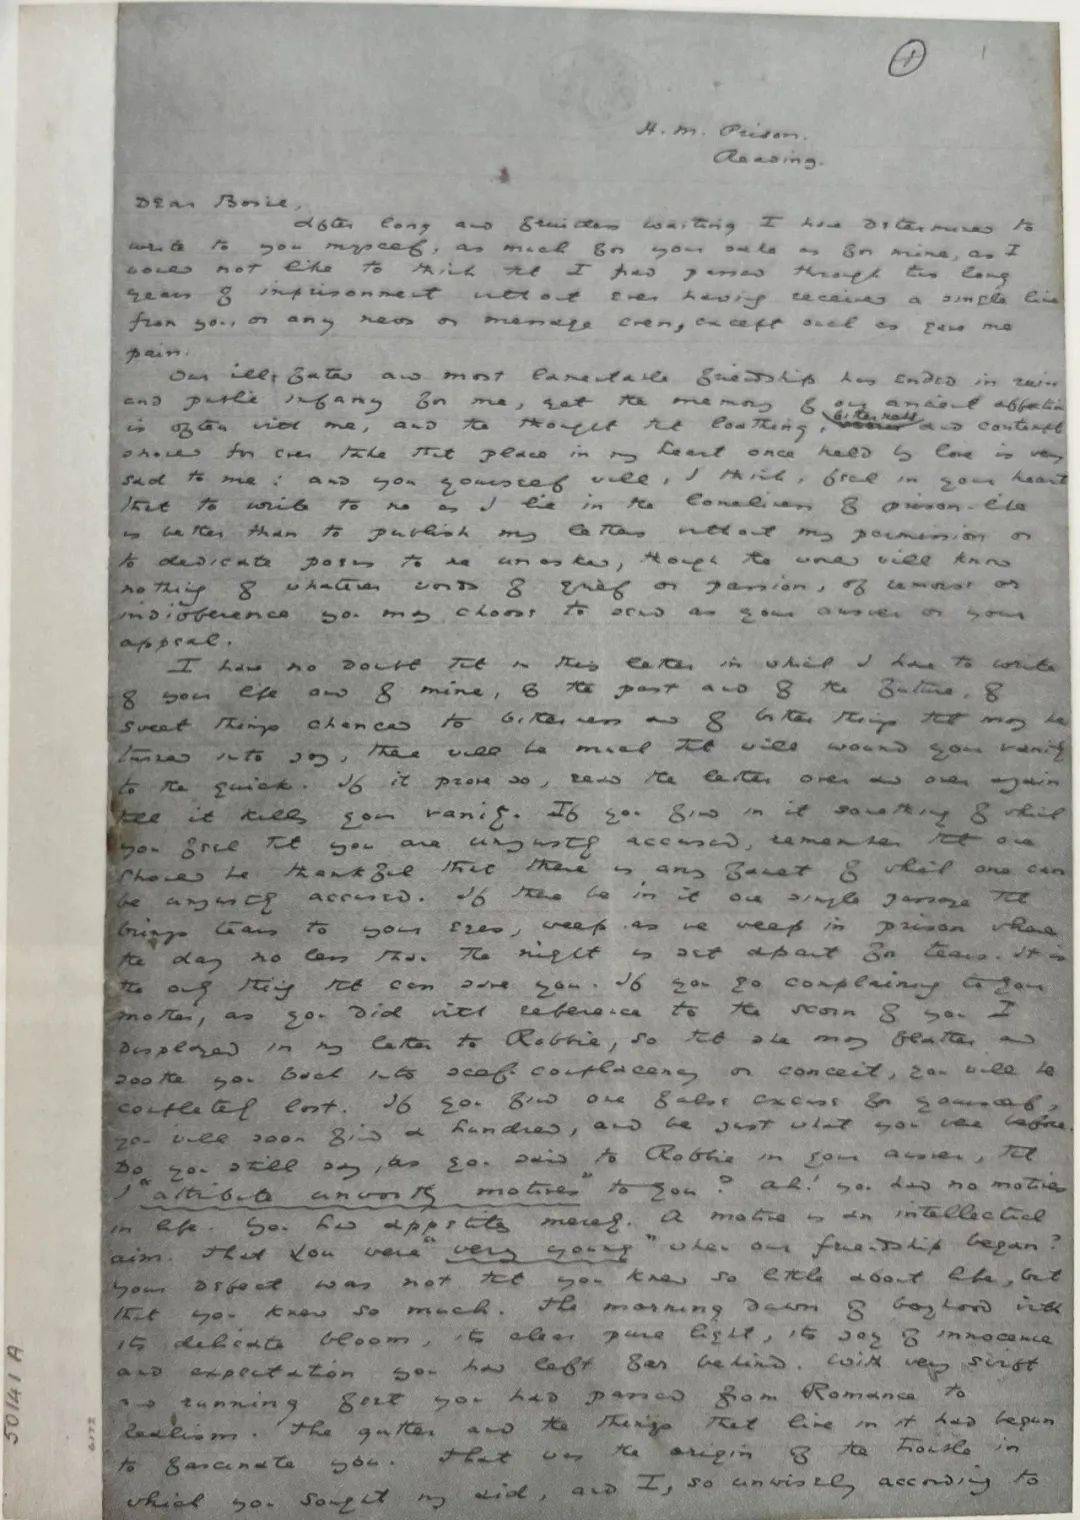 1
H. M. Prison.
Reading.
Dear Bosie,
After long and fruitless waiting I have determined to
write to you myself, as much for your sake as for mine, as I
would not like to think that I had passed through two long
years of imprisonment without ever having received a single line
from you, or any news or message even, except such as gave me
pain.
Our ill-fated and most lamentable friendship has ended in ruin
and public infamy for me, yet the memory of our ancient affection
is often with me, and the thought that loathing, bitterness and contempt
should for ever take that place in my heart once held by love is very
sad to me: and you yourself will, I think, feel in your heart
that to write to me as I lie in the loneliness of prison-life
is better than to publish my letters without my permission or
to dedicate poems to me unasked, though the world will know
nothing of whatever words of grief or passion, of remorse or
indifference you may choose to send as your answer or your
appeal.
I have no doubt that in this letter in which I have to write
of your life and of mine, of the past and of the future, of
sweet things changed to bitterness and of bitter things that may be
turned into joy, there will be much that will wound your vanity
to the quick. If it prove so, read the letter over and over again
till it kills your vanity. If you find in it something of which
you feel that you are unjustly accused, remember that one
should be thankful that there is any fault of which one can
be unjustly accused. If there be in it one single passage that
brings tears to your eyes, weep as we weep in prison where
the day no less than the night is set apart for tears. It is
the only thing that can save you. If you go complaining to your
mother, as you did with reference to the scorn of you I
displayed in my letter to Robbie, so that she may flatter and
soothe you back into self-complacency or conceit, you will be
completely lost. If you find one false excuse for yourself,
you will soon find a hundred, and be just what you were before.
Do you still say, as you said to Robbie in your answer, that
I "attribute unworthy motives" to you? Ah! you had no motives
in life. You had appetites merely. A motive is an intellectual
aim. That you were "very young" when our friendship began?
Your defect was not that you knew so little about life, but
that you knew so much. The morning dawn of boyhood with
its delicate bloom, its clear pure light, its joy of innocence
and expectation you had left far behind. With very swift
and running feet you had passed from Romance to
Realism. The gutter and the things that live in it had begun
to fascinate you. That was the origin of the trouble in
which you sought my aid, and I, so unwisely according to
50141 A